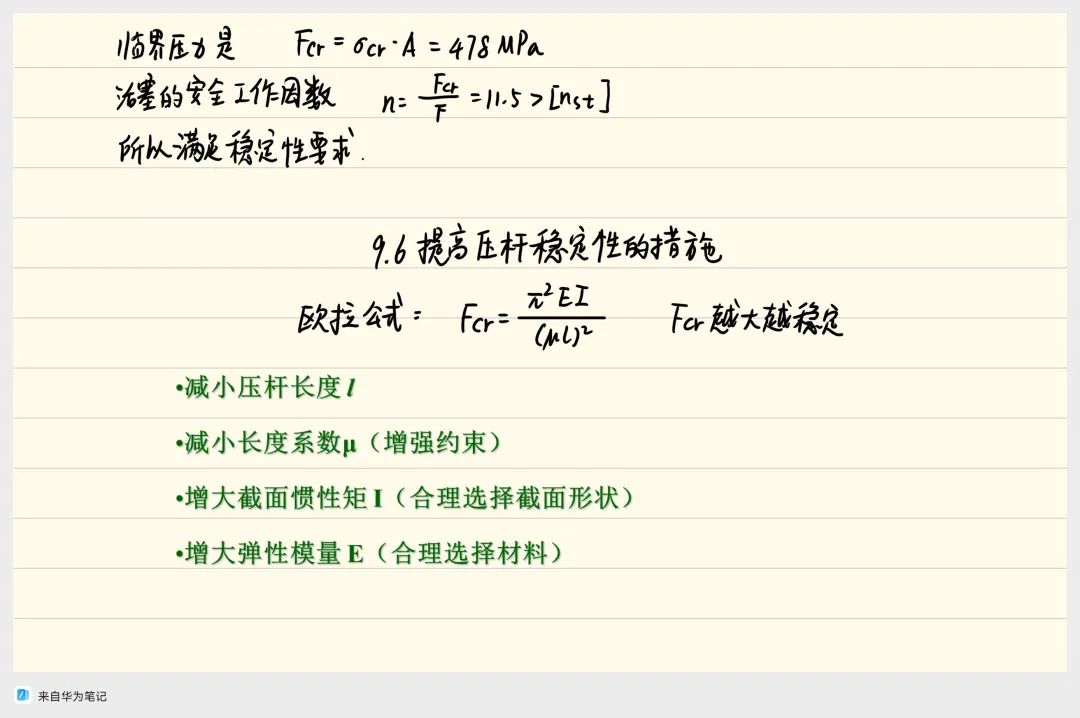 临界压力是 Fcr = σcr·A = 478 MPa
活塞的安全工作因数 n = Fcr/F = 11.5 > [nst]
所以满足稳定性要求.
9.6 提高压杆稳定性的措施
欧拉公式: Fcr = π²EI/(μl)² Fcr越大越稳定
•减小压杆长度 l
•减小长度系数μ（增强约束）
•增大截面惯性矩 I（合理选择截面形状）
•增大弹性模量 E（合理选择材料）
来自华为笔记